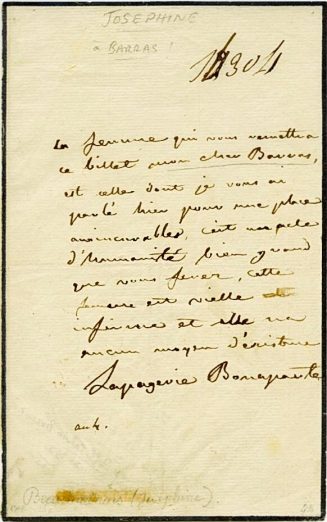 JOSEPHINE
à BARRAS !
La femme qui vous remettra
ce billet mon cher Barras,
est celle dont je vous ai
parlé hier pour une place
aux incurables, c'est un acte
d'humanité bien grand
que vous ferez, cette
femme est vielle
infirme et elle n'a
aucun moyen d'existence
Lapagerie Bonaparte
(Joséphine).